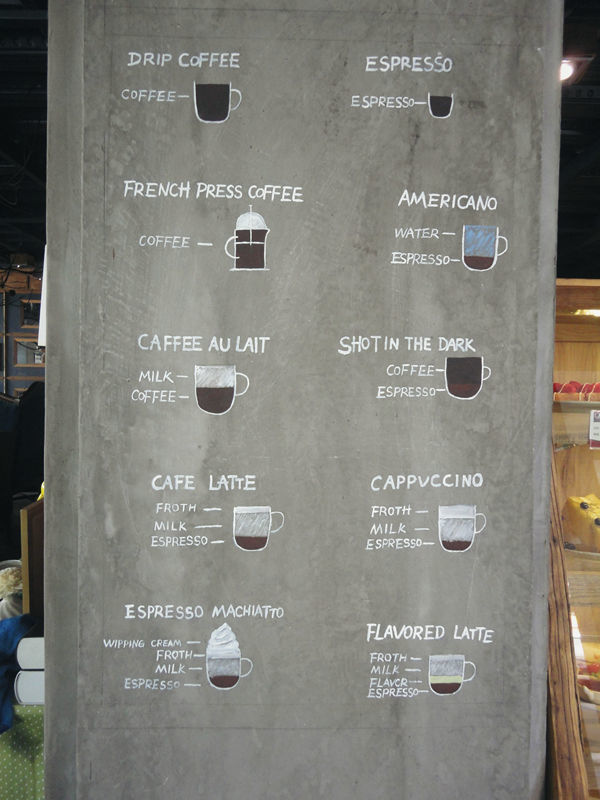 DRIP COFFEE
COFFEE
ESPRESSO
ESPRESSO
FRENCH PRESS COFFEE
COFFEE
AMERICANO
WATER
ESPRESSO
CAFFEE AU LAIT
MILK
COFFEE
SHOT IN THE DARK
COFFEE
ESPRESSO
CAFE LATTE
FROTH
MILK
ESPRESSO
CAPPUCCINO
FROTH
MILK
ESPRESSO
ESPRESSO MACHIATTO
WIPPING CREAM
FROTH
MILK
ESPRESSO
FLAVORED LATTE
FROTH
MILK
FLAVOR
ESPRESSO